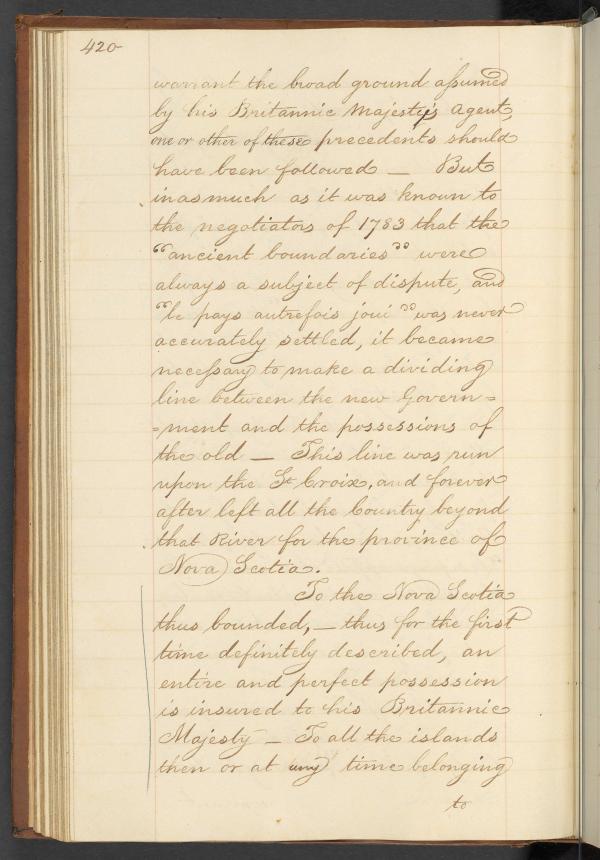 420
warrant the broad ground assumed
by his Britannic Majesty's Agent,
one or other of these precedents should
have been followed — But
inasmuch as it was known to
the negotiators of 1783 that the
“ancient boundaries” were
always a subject of dispute, and
“le pays autrefois joui” was never
accurately settled, it became
necessary to make a dividing
line between the new Govern=
=ment and the possessions of
the old — This line was run
upon the St Croix, and forever
after left all the Country beyond
that River for the province of
Nova Scotia.
To the Nova Scotia
thus bounded, — thus for the first
time definitely described, an
entire and perfect possession
is insured to his Britannic
Majesty — To all the islands
then or at any time belonging
to